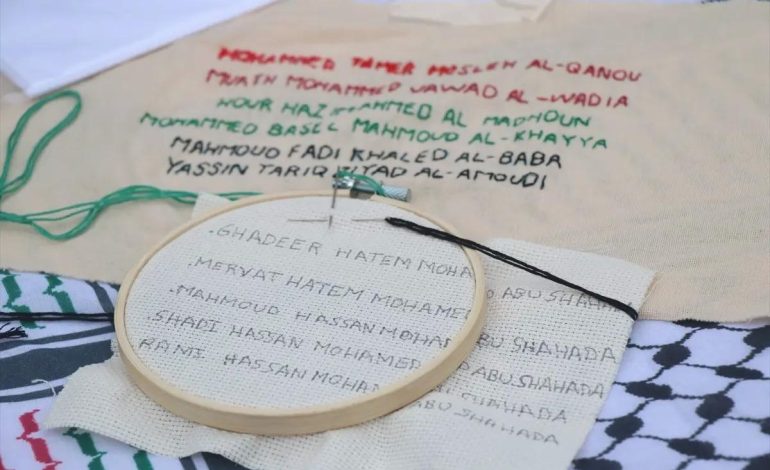 MOHAMMED TAMER MOSLEH AL-QANOU
MUATH MOHAMMED JAWAD AL-WADIA
HOUR HAZ AHMED AL MADHOUN
MOHAMMED BASEL MAHMOUD AL-KHAYYA
MAHMOUD FADI KHALED AL-BABA
YASSIN TARIQ ZIYAD AL-AMOUDI
.GHADEER HATEM MOHA
.MERVAT HATEM MOHAMED ABU SHAHADA
.MAHMOUD HASSAN MOHAM ABU SHAHADA
.SHADI HASSAN MOHAMED ABU SHAHADA
RAMI HASSAN MOHAM ABU SHAHADA
ABU SHAHADA